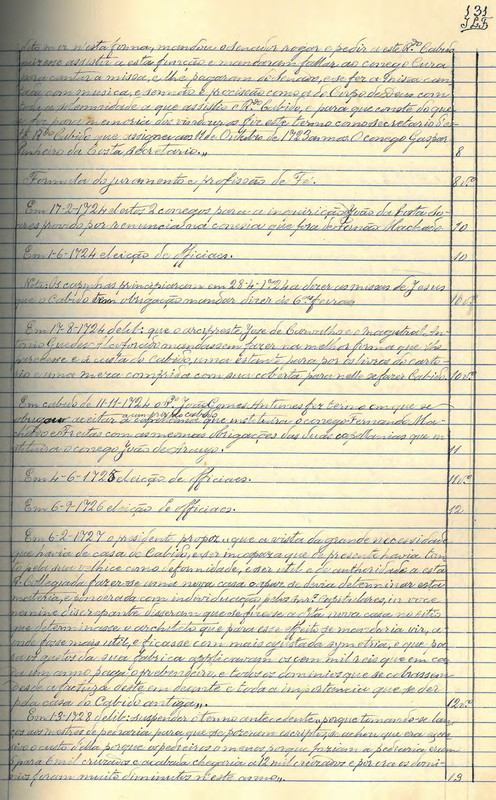 131
dito mor n'esta forma, mandou o senador rogar e pedir a este Rdo Cabido
quizesse assistir a esta função e mandaram fallar ao conego Cura
para cantar a missa, e lhe pagaram do Senado, e se fez a Missa can-
tada com musica, e sermão e procissão como a de Corpo de Deus com
toda a solemnidade a que assistiu o Rdo Cabido, e para que conste do que
se fez para memoria dos vindouros fiz este termo como secretario d'es-
te Rdo Cabido que assignei aos 11 de Outubro de 1723 annos. O conego Gaspar
Pinheiro da Costa secretario.,,
8
Formula do juramento e profissão de Fé.
8 vo
Em 17-2-1724 eleitos 2 conegos para a inquirição de João da Costa So-
ares provido por renuncia na conesia que fôra de Fernão Machado
10
Em 1-6-1724 eleição de officiaes.
10
Nota: Os curinhas principiaram em 28-4-1724 a dizer as missas de Jesus
que o Cabido tem obrigação mandar dizer ás 6as feiras
10 vo
Em 17-8-1724 delib: que o arcypreste José de Carvalho e o magistral An-
tonio Guedes mandassem fazer na melhor forma que lhes
parecesse e á custa do Cabido, uma estante para por os livros do carto-
rio e uma meza comprida com sua coberta para nella se fazer Cabido.
10 vo
Em cabido de 11-11-1724 o Rdo João Gomes Antunes fez termo em que se
obrigou aceitar a capellania que instituira o conego Fernando Ma-
chado e Freitas com as mesmas obrigações das duas capellanias que in-
stituira o conego João de Araujo.
11
Em 4-6-1725 eleição de officiaes.
11 vo
Em 6-9-1726 eleição de officiaes.
12
Em 6-2-1727 o presidente propoz ,,que a vista da grande necessidade
que havia de casa do Cabido, e ser incapaz a que de presente havia tan-
to pela sua velhice como deformidade, e ser util e de authoridade a esta
Rl Collegiada fazer-se uma nova casa e que se devia determinar esta
materia, e conserada com individuação pelos Snrs Capitulares, in voce
nemine discrepante disseram que se fizesse a dita nova casa no sitio
que determinasse o architeto que para esse effeito se mandaria vir, a
onde fosse mais util, e ficasse com mais ajustada symetria, e que pa-
ra os gastos da sua fabrica applicavam os cem mil reis que em ca-
da um anno paga o prebendeiro, e todos os dominios que se cobrassem
desde a factura deste em deante e toda a importancia que se der
pela casa do Cabido antiga.,,
12 vo
Em 1-3-1728 delib: suspender o termo antecedente ,,porque tomando-se lan-
ços aos mestres de pedraria para que se pozeram escriptos, se achou que era exces-
sivo o custo della porque os pedreiros o menos porque faziam a pedraria eram
para 6 mil cruzados e acabada chegaria a 12 mil cruzados e por ora os domi-
nios foram muito diminutos n'este anno.,,
13